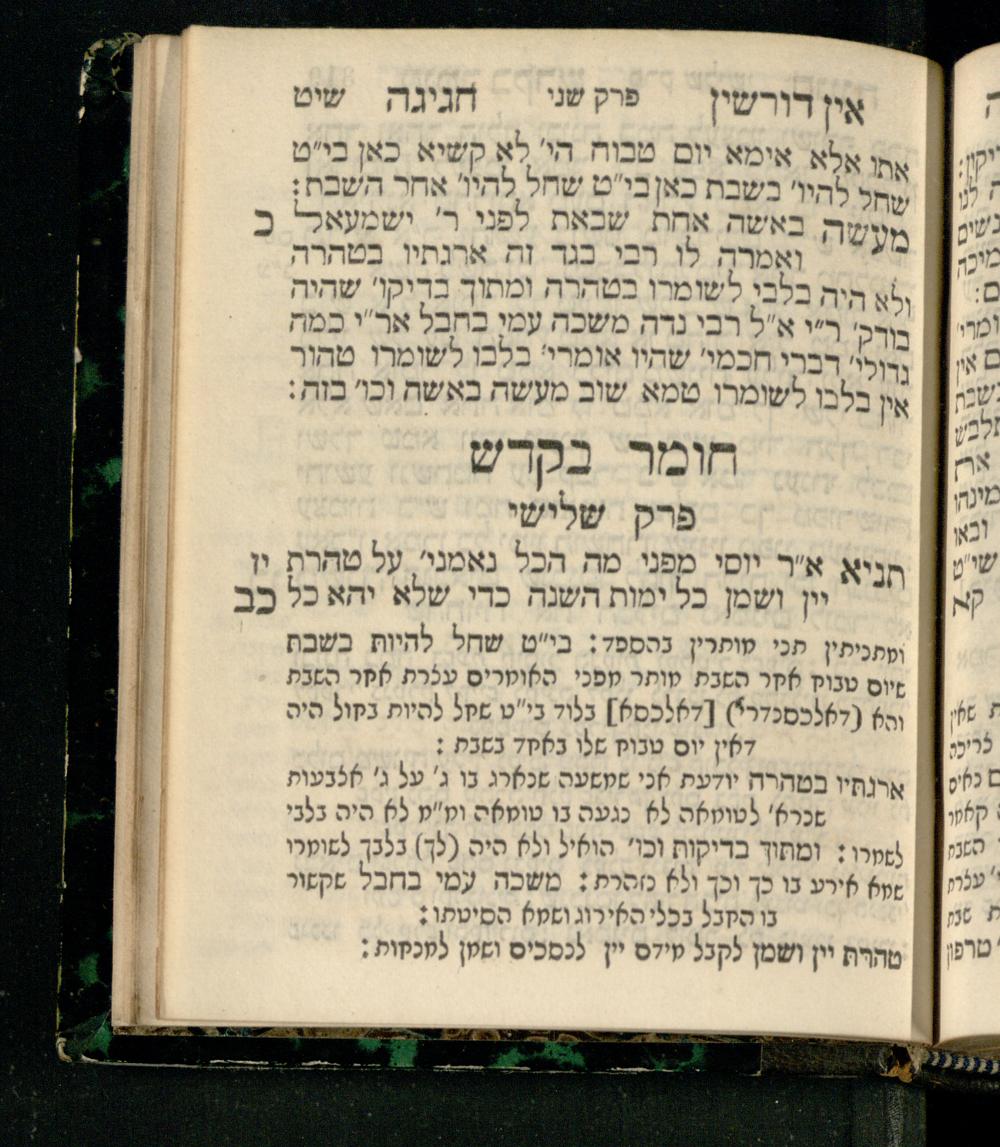 אין דורשין פרק שני חגיגה שיט
אתו אלא אימא יום טבוח הי׳ לא קשיא כאן בי״ט
שחל להיו׳ בשבת כאן בי״ט שחל להיו׳ אחר השבת:
מעשה באשה אחת שבאת לפני ר׳ ישמעאל כ
ואמרה לו רבי בגד זה ארגתיו בטהרה
ולא היה בלבי לשומרו בטהרה ומתוך בדיקו׳ שהיה
בודק׳ ר״י א״ל רבי נדה משכה עמי בחבל אר״י כמה
גדולי׳ דברי חכמי׳ שהיו אומרי׳ בלבו לשומרו טהור
אין בלבו לשומרו טמא שוב מעשה באשה וכו׳ בזה:
חומר בקדש
פרק שלישי
תניא א״ר יוסי מפני מה הכל נאמני׳ על טהרת יז
יין ושמן כל ימות השנה כדי שלא יהא כל כב
ומתניתין תני מותרין בהספד: בי״ט שחל להיות בשבת
שיום טבוח אחר השבת מותר מפני האומרים עצרת אחר השבת
והא (דאלכסנדר׳) [דאלכסא] בלוד בי״ט שחל להיות בחול היה
דאין יום טבוח שלו באחד בשבת :
ארגתיו בטהרה יודעת אני שמשעה שנארג בו ג׳ על ג׳ אצבעות
שנרא׳ לטומאה לא נגעה בו טומאה ומ״מ לא היה בלבי
לשמרו : ומתוך בדיקות וכו׳ הואיל ולא היה (לך) בלבך לשומרו
שמא אירע בו כך וכך ולא נזהרת : משכה עמי בחבל שקשור
בו הקבל בכלי האירוג ושמא הסיטתו :
טהרת יין ושמן לקבל מידם יין לנסכים ושמן למנחות :